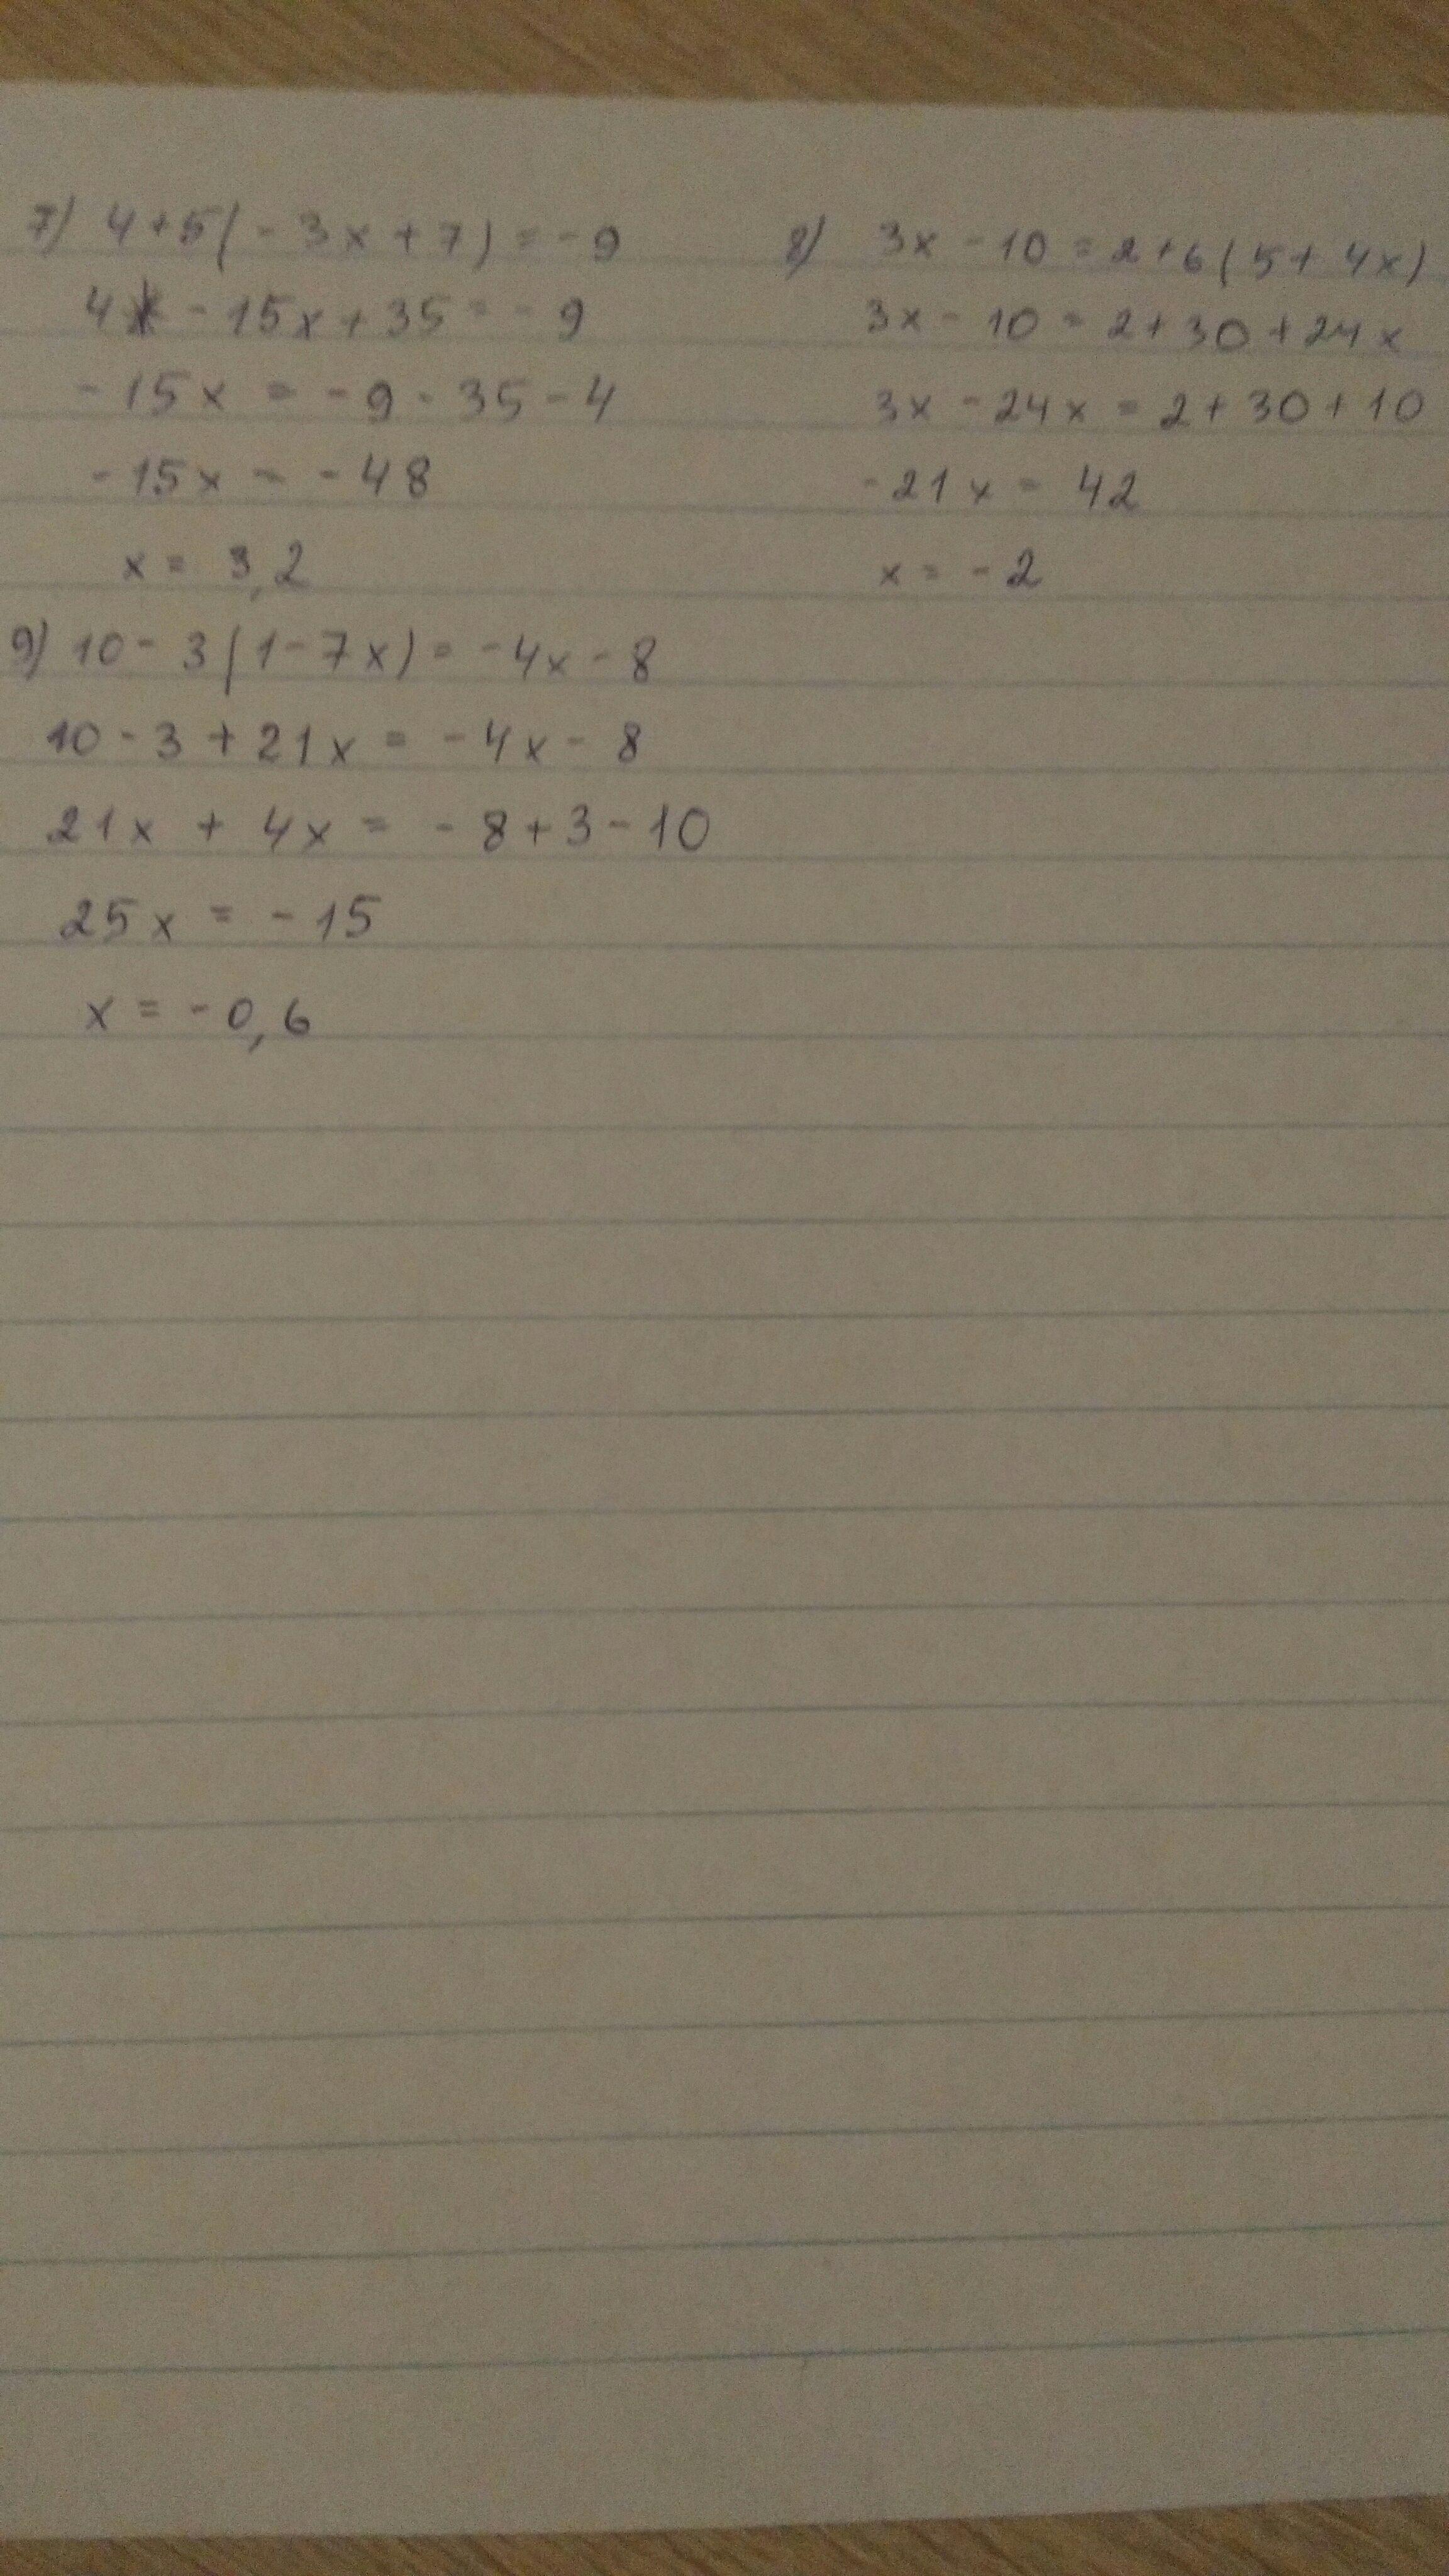 7) 4+5(-3x+7)=-9
4 -15x+35=-9
-15x = -9-35-4
-15x = -48
x = 3,2
8) 3x-10=2+6(5+4x)
3x-10=2+30+24x
3x-24x=2+30+10
-21x=42
x=-2
9) 10-3(1-7x)=-4x-8
10-3+21x=-4x-8
21x+4x=-8+3-10
25x=-15
x=-0,6